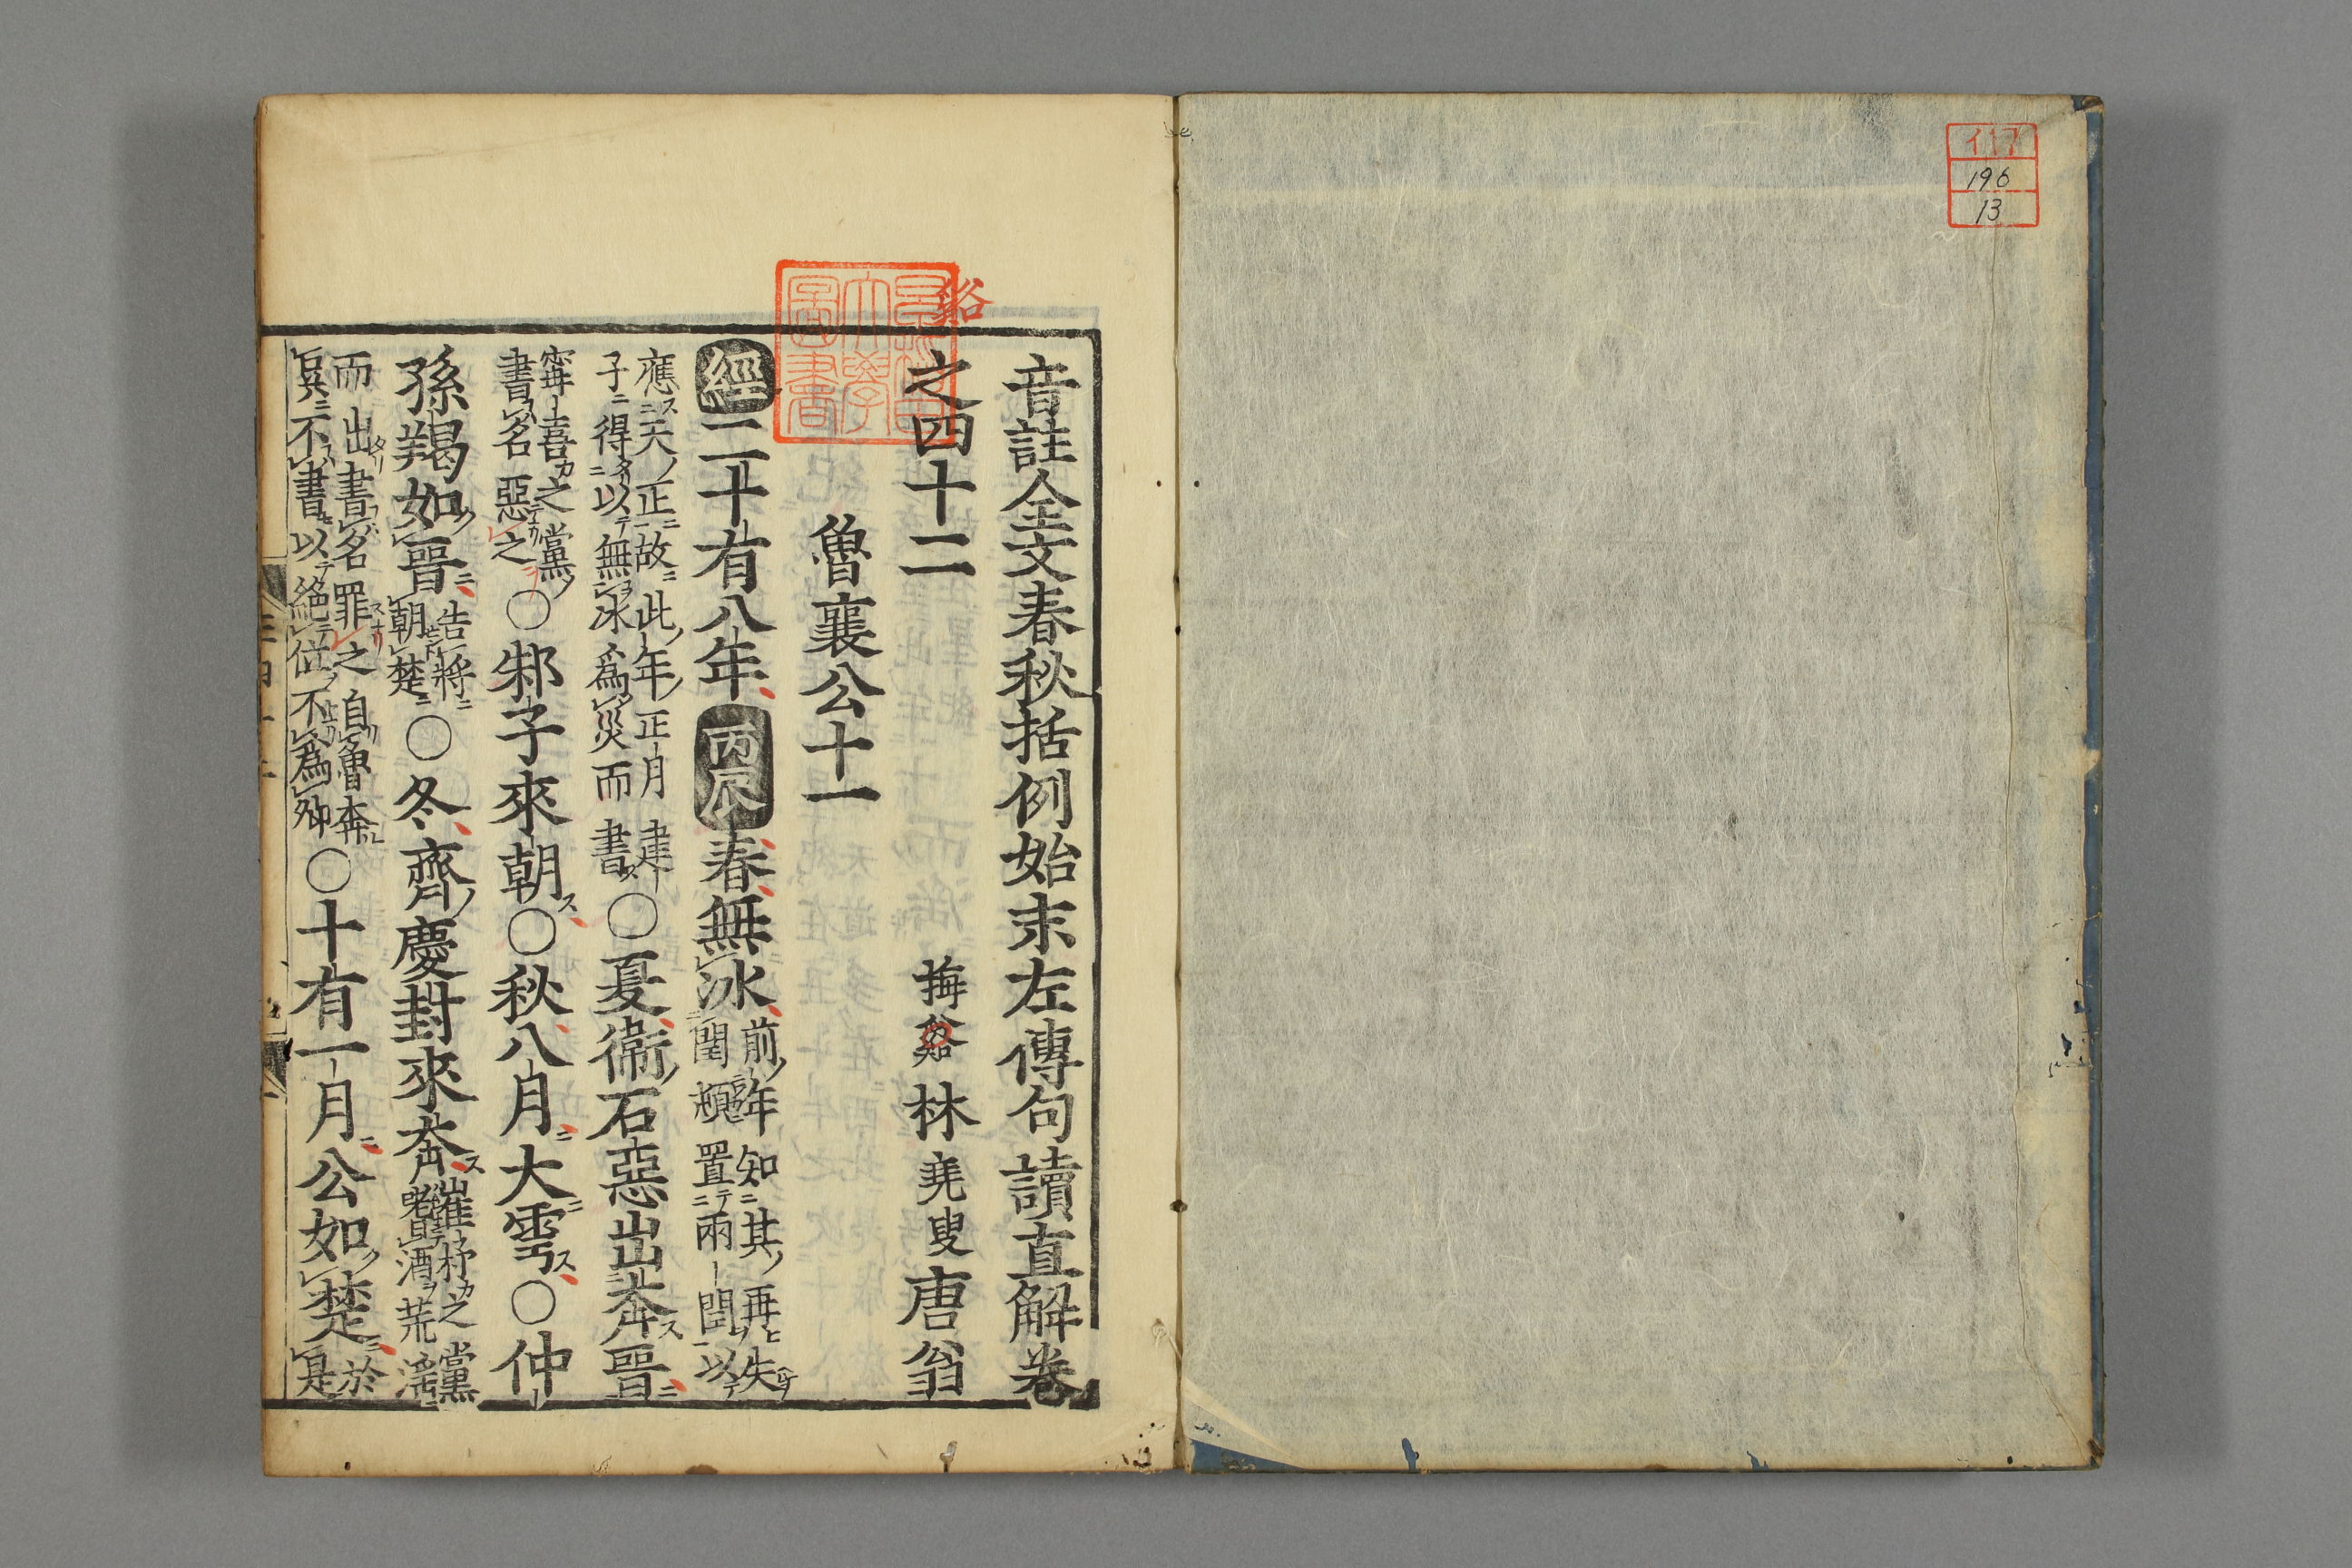 イ17
196
13
谿
音註全文春秋括例始末左傳句讀直解卷
之四十二 梅谿林堯叟唐翁
魯襄公十一
經二十有八年丙辰春無冰前年知其再失閏頓置兩閏以
應天正故此年正月建子得以無冰爲災而書○夏衞石惡出奔晉
甯喜之黨書名惡之○邾子來朝○秋八月大雩○仲
孫羯如晉告將朝楚○冬齊慶封來奔崔杼之黨耆酒荒淫
而出書名罪之自魯奔吳不書以絶位不爲卿○十有一月公如楚於是